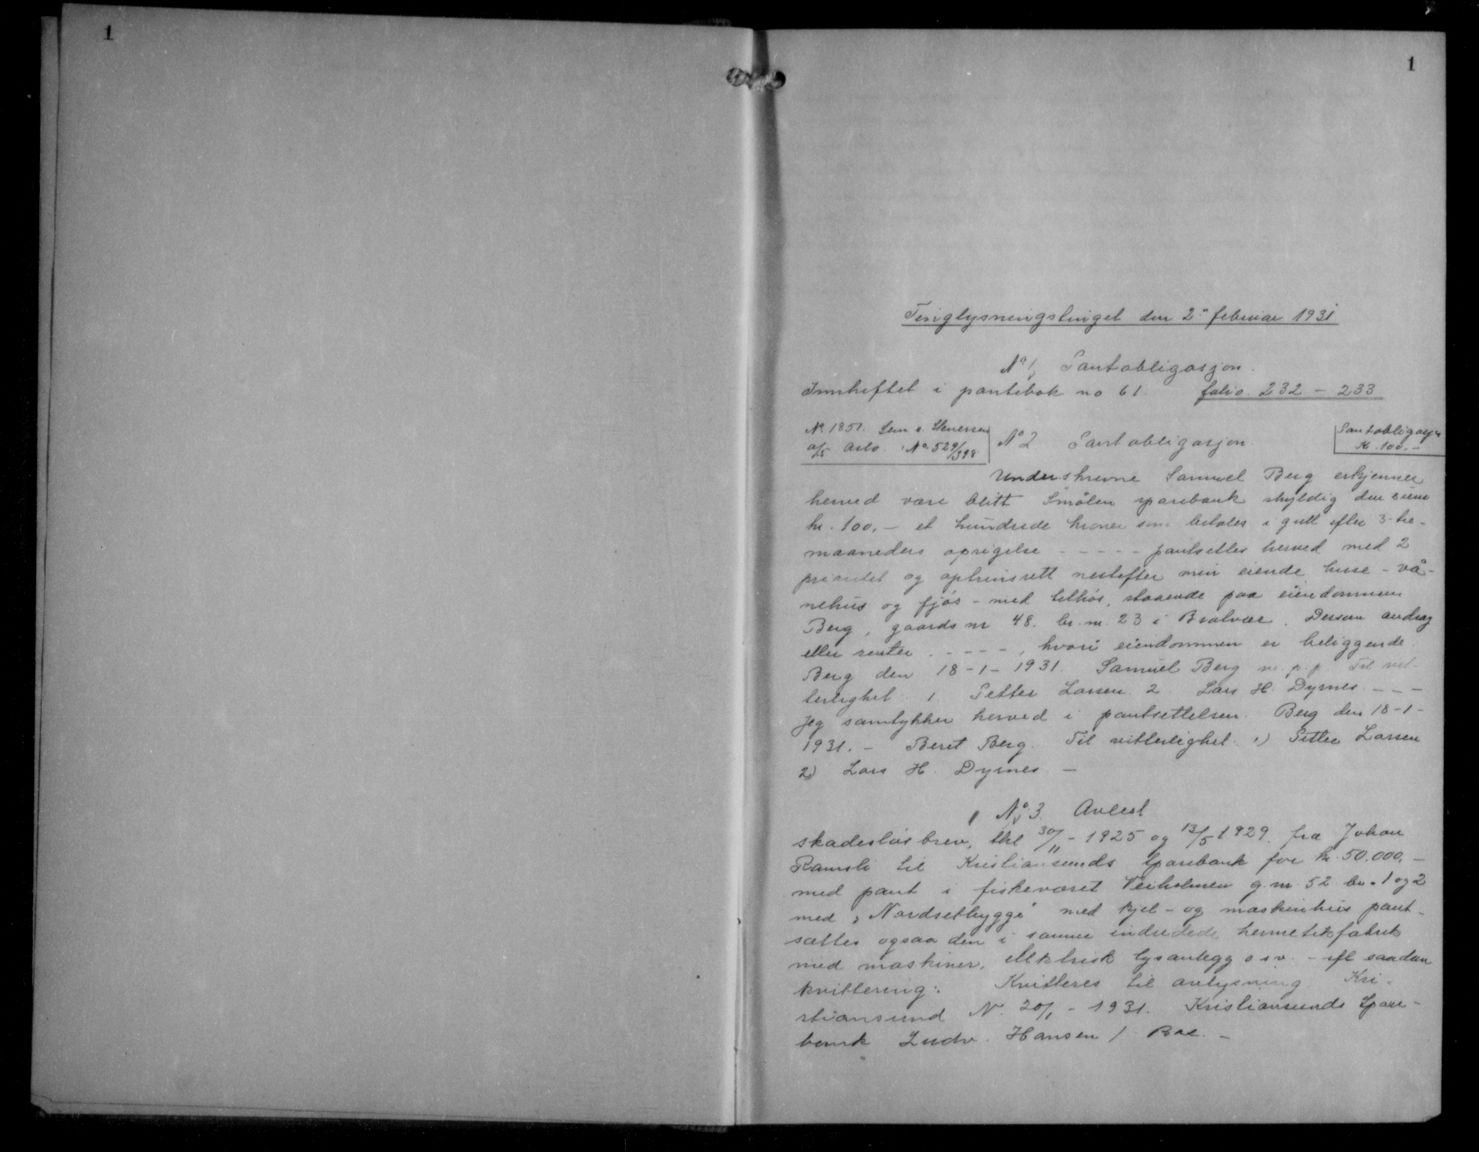 1
1
Tinglysningstinget den 2. februar 1931
No 1, Pantobligasjon.
Innheftet i pantebok no 61. folio 232 - 233
No 1851. Sem & Stenersen
a/s Oslo. No 529/398
No 2 Pantobligasjon
Pantobligasjon
Kr. 100.-
Underskrevne Samuel Berg erkjenner
herved være blitt Smølen sparebank skyldig den
kr. 100,- et hundrede kroner som betales i gull efter 3-tre-
maaneders opsigelse - - - - - pantsettes herved med 2
prioritet og ophinsrett nestefter min eiende huse - vå-
nehus og fjøs - med tilhør, staaende paa eiendommen
Berg, gaards nr 48. br. nr. 23 i Bratvær. Dersom andrag
eller renter. - - - -, hvori eiendommen er beliggende.
Berg den 18-1-1931. Samuel Berg m. p. p. Til vit-
terlighet 1 Petter Larsen. 2. Lars H. Dyrnes. - - -
Jeg samtykker herved i pantsettelsen. Berg den 18-1-
1931. - Beret Berg. Til vitterlighet. 1) Petter Larsen
2) Lars H. Dyrnes -
No 3. Avlest
skadesløsbrev, tkl 30/11 - 1925 og 13/5 1929. fra Johan
Ramsli til Kristiansunds Sparebank for kr. 50.000,-
med pant i fiskeværet Veiholmen g. nr. 52 br. 1 og 2
med "Nordsetbygge" med kjel- og maskinhus pant-
sættes ogsaa den i samme indredede hermetikfabrik
med maskiner, elektrisk lysanlegg o s v. - ifl saadan
kvittering: Kvitteres til avlysning Kri-
stiansund N. 20/1 - 1931. Kristiansunds Spare-
bank Ludv. Hansen / Roe. -